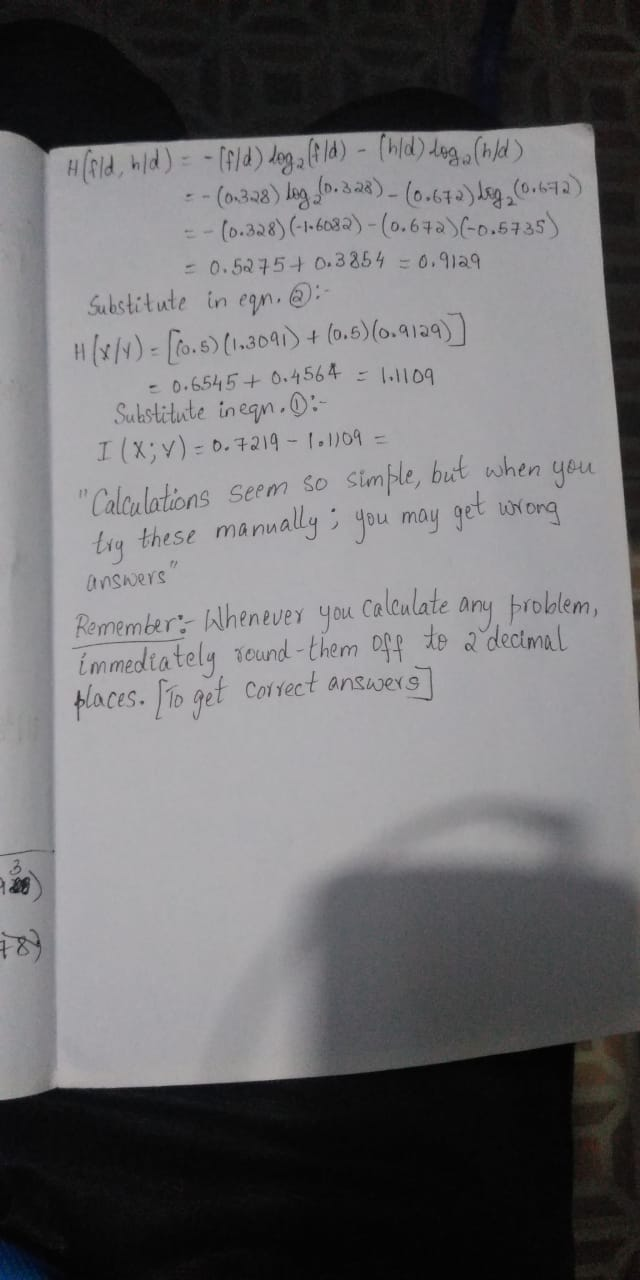 H(f/d, h/d) = -(f/d) log₂(f/d) - (h/d) log₂(h/d)
= -(0.328) log₂(0.328) - (0.672) log₂(0.672)
= -(0.328)(-1.6082) - (0.672)(-0.5735)
= 0.5275 + 0.3854 = 0.9129
Substitute in eqn. ②:-
H(X/Y) = [(0.5)(1.3091) + (0.5)(0.9129)]
= 0.6545 + 0.4564 = 1.1109
Substitute in eqn. ①:-
I(X;Y) = 0.7219 - 1.1109 =
"Calculations seem so simple, but when you
try these manually; you may get wrong
answers"
Remember:- Whenever you calculate any problem,
immediately round-them off to 2 decimal
places. [To get correct answers]
3
78)